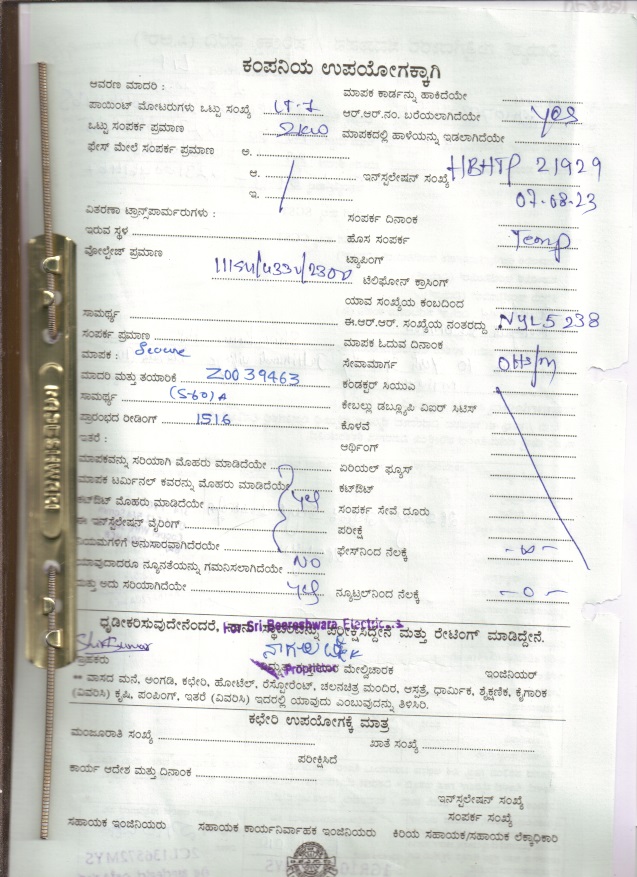 ಕಂಪನಿಯ ಉಪಯೋಗಕ್ಕಾಗಿ
ಆವರಣ ಮಾದರಿ :
ಮಾಪಕ ಕಾರ್ಡನ್ನು ಹಾಕಿದೆಯೇ
ಪಾಯಿಂಟ್ ಮೋಟರುಗಳು ಒಟ್ಟು ಸಂಖ್ಯೆ LT-1
ಆರ್.ಆರ್.ನಂ. ಬರೆಯಲಾಗಿದೆಯೇ yes
ಒಟ್ಟು ಸಂಪರ್ಕ ಪ್ರಮಾಣ 2KW
ಮಾಪಕದಲ್ಲಿ ಹಾಳೆಯನ್ನು ಇಡಲಾಗಿದೆಯೇ
ಫೇಸ್ ಮೇಲೆ ಸಂಪರ್ಕ ಪ್ರಮಾಣ ಅ.
ಆ.
ಇನ್‌ಸ್ಟಲೇಷನ್ ಸಂಖ್ಯೆ HBHTP 21929
ಇ.
07-08-23
ವಿತರಣಾ ಟ್ರಾನ್ಸ್‌ಪಾರ್ಮರುಗಳು :
ಸಂಪರ್ಕ ದಿನಾಂಕ
ಇರುವ ಸ್ಥಳ
ಹೊಸ ಸಂಪರ್ಕ Temp
ವೋಲ್ಟೇಜ್ ಪ್ರಮಾಣ
ಟ್ಯಾಪಿಂಗ್
ಟೆಲಿಫೋನ್ ಕ್ರಾಸಿಂಗ್
ಯಾವ ಸಂಖ್ಯೆಯ ಕಂಬದಿಂದ
ಸಾಮರ್ಥ್ಯ
ಈ.ಆರ್.ಆರ್. ಸಂಖ್ಯೆಯ ನಂತರದ್ದು NYL5238
ಸಂಪರ್ಕ ಪ್ರಮಾಣ
ಮಾಪಕ ಓದುವ ದಿನಾಂಕ
ಮಾಪಕ : Secure
ಸೇವಾಮಾರ್ಗ OHS/M
ಮಾದರಿ ಮತ್ತು ತಯಾರಿಕೆ Z0039463
ಕಂಡಕ್ಟರ್ ಸಿಯುಎ
ಸಾಮರ್ಥ್ಯ (5-60)A
ಕೇಬಲ್ಲು ಡಬ್ಲ್ಯೂಪಿ ವಿಐರ್ ಸಿಟಿಸ್
ಪ್ರಾರಂಭದ ರೀಡಿಂಗ್ 1516
ಕೊಳವೆ
ಇತರೆ :
ಆರ್ಥಿಂಗ್
ಮಾಪಕವನ್ನು ಸರಿಯಾಗಿ ಮೊಹರು ಮಾಡಿದೆಯೇ
ಏರಿಯಲ್ ಫ್ಯೂಸ್
ಮಾಪಕ ಟರ್ಮಿನಲ್ ಕವರನ್ನು ಮೊಹರು ಮಾಡಿದೆಯೇ
ಕಟ್‌ಔಟ್
ಕಟ್‌ಔಟ್ ಮೊಹರು ಮಾಡಿದೆಯೇ yes
ಸಂಪರ್ಕ ಸೇವೆ ದೂರು
ಈ ಇನ್‌ಸ್ಟಲೇಷನ್ ವೈರಿಂಗ್
ಪರೀಕ್ಷೆ
ನಿಯಮಗಳಿಗೆ ಅನುಸಾರವಾಗಿದೆರೆಯೇ
ಫೇಸ್‌ನಿಂದ ನೆಲಕ್ಕೆ
ಯಾವುದಾದರೂ ನ್ಯೂನತೆಯನ್ನು ಗಮನಿಸಲಾಗಿದೆಯೇ NO
ಮತ್ತು ಅದು ಸರಿಯಾಗಿದೆಯೇ yes
ನ್ಯೂಟ್ರಲ್‌ನಿಂದ ನೆಲಕ್ಕೆ -0-
For Sri Beereshwara Electric
Proprietor
ಗ್ರಾಹಕರು
ಮೇಲ್ವಿಚಾರಕ
ಇಂಜಿನಿಯರ್
** ವಾಸದ ಮನೆ, ಅಂಗಡಿ, ಕಛೇರಿ, ಹೋಟೆಲ್, ರೆಸ್ಟೋರೆಂಟ್, ಚಲನಚಿತ್ರ ಮಂದಿರ, ಆಸ್ಪತ್ರೆ, ಧಾರ್ಮಿಕ, ಶೈಕ್ಷಣಿಕ, ಕೈಗಾರಿಕ
(ವಿವರಿಸಿ) ಕೃಷಿ, ಪಂಪಿಂಗ್, ಇತರೆ (ವಿವರಿಸಿ) ಇದರಲ್ಲಿ ಯಾವುದು ಎಂಬುವುದನ್ನು ತಿಳಿಸಿರಿ.
ಕಛೇರಿ ಉಪಯೋಗಕ್ಕೆ ಮಾತ್ರ
ಮಂಜೂರಾತಿ ಸಂಖ್ಯೆ
ಖಾತೆ ಸಂಖ್ಯೆ
ಪರೀಕ್ಷಿಸಿದೆ
ಕಾರ್ಯ ಆದೇಶ ಮತ್ತು ದಿನಾಂಕ
ಇನ್‌ಸ್ಟಲೇಷನ್ ಸಂಖ್ಯೆ
ಸಂಪರ್ಕ ಸಂಖ್ಯೆ
ಸಹಾಯಕ ಇಂಜಿನಿಯರು
ಸಹಾಯಕ ಕಾರ್ಯನಿರ್ವಾಹಕ ಇಂಜಿನಿಯರು
ಕಿರಿಯ ಸಹಾಯಕ/ಸಹಾಯಕ ಲೆಕ್ಕಾಧಿಕಾರಿ